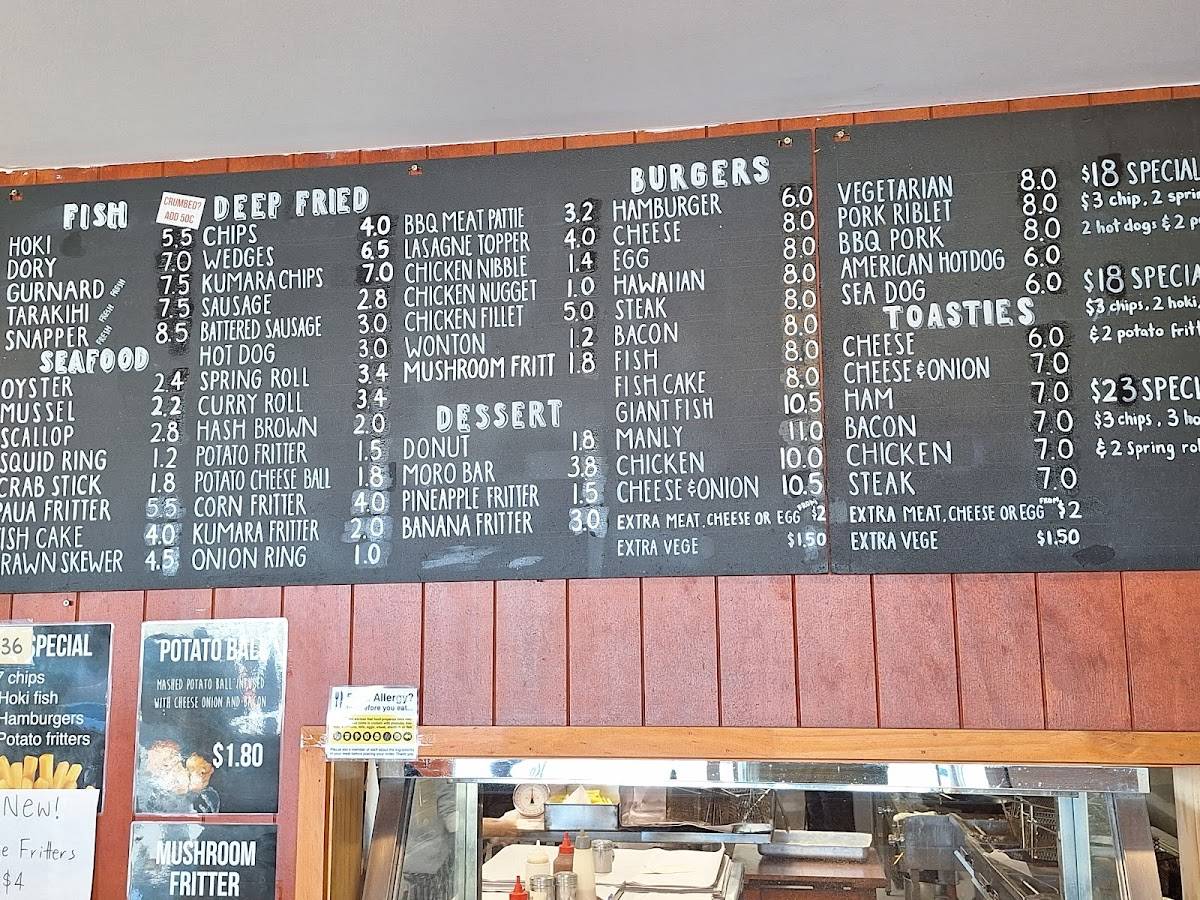 FISH
CRUMBED?
ADD 50C
HOKI 5.5
DORY 7.0
GURNARD FRESH 7.5
TARAKIHI FRESH 7.5
SNAPPER FRESH 8.5
SEAFOOD
OYSTER 2.4
MUSSEL 2.2
SCALLOP 2.8
SQUID RING 1.2
CRAB STICK 1.8
PAUA FRITTER 5.5
ISH CAKE 4.0
RAWN SKEWER 4.5
DEEP FRIED
CHIPS 4.0
WEDGES 6.5
KUMARA CHIPS 7.0
SAUSAGE 2.8
BATTERED SAUSAGE 3.0
HOT DOG 3.0
SPRING ROLL 3.4
CURRY ROLL 3.4
HASH BROWN 2.0
POTATO FRITTER 1.5
POTATO CHEESE BALL 1.8
CORN FRITTER 4.0
KUMARA FRITTER 2.0
ONION RING 1.0
BBQ MEAT PATTIE 3.2
LASAGNE TOPPER 4.0
CHICKEN NIBBLE 1.4
CHICKEN NUGGET 1.0
CHICKEN FILLET 5.0
WONTON 1.2
MUSHROOM FRITT 1.8
DESSERT
DONUT 1.8
MORO BAR 3.8
PINEAPPLE FRITTER 1.5
BANANA FRITTER 3.0
BURGERS
HAMBURGER 6.0
CHEESE 8.0
EGG 8.0
HAWAIIAN 8.0
STEAK 8.0
BACON 8.0
FISH 8.0
FISH CAKE 8.0
GIANT FISH 10.5
MANLY 11.0
CHICKEN 10.0
CHEESE & ONION 10.5
EXTRA MEAT, CHEESE OR EGG FROM $2
EXTRA VEGE $1.50
VEGETARIAN 8.0
PORK RIBLET 8.0
BBQ PORK 8.0
AMERICAN HOTDOG 6.0
SEA DOG 6.0
TOASTIES
CHEESE 6.0
CHEESE & ONION 7.0
HAM 7.0
BACON 7.0
CHICKEN 7.0
STEAK 7.0
EXTRA MEAT, CHEESE OR EGG FROM $2
EXTRA VEGE $1.50
$18 SPECIAL
$3 chip, 2 sprin
2 hot dogs & 2 p
$18 SPECIA
$3 chips, 2 hoki,
& 2 potato fritt
$23 SPECI
$3 chips, 3 ho
& 2 Spring rol
36 SPECIAL
7 chips
Hoki fish
Hamburgers
Potato fritters
New!
e Fritters
$4
POTATO BALL
MASHED POTATO BALL INFUSED
WITH CHEESE ONION AND BACON
$1.80
MUSHROOM
FRITTER
Allergy?
before you eat...